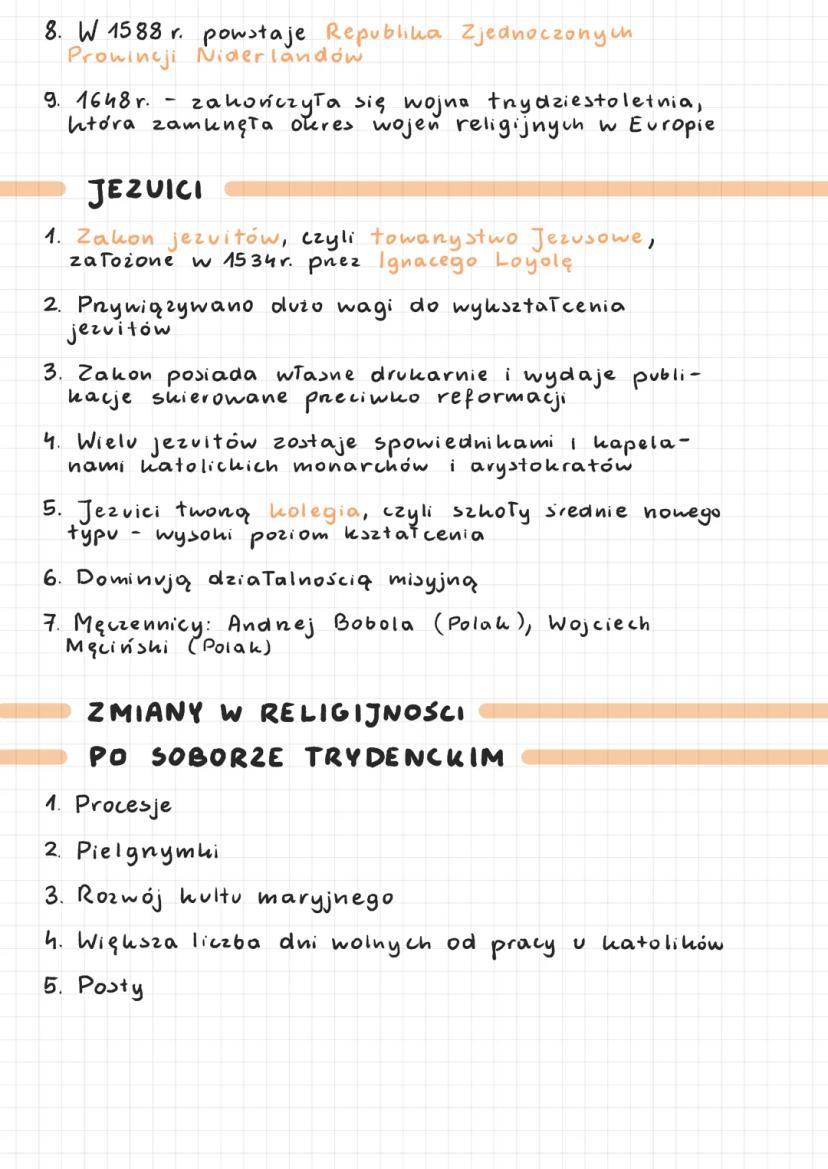 8. W 1588 r. powstaje Republika Zjednoczonych
Prowincji Niderlandów
9. 1648 r. - zakończyła się wojna trzydziestoletnia,
która zamknęła okres wojen religijnych w Europie
JEZUICI
1. Zakon jezuitów, czyli towarzystwo Jezusowe,
założone w 1534r. przez Ignacego Loyolę
2. Przywiązywano dużo wagi do wykształcenia
jezuitów
3. Zakon posiada własne drukarnie i wydaje publi-
kacje skierowane przeciwko reformacji
4. Wielu jezuitów zostaje spowiednikami i kapela-
nami katolickich monarchów i arystokratów
5. Jezuici tworzą kolegia, czyli szkoły średnie nowego
typu - wysoki poziom kształcenia
6. Dominują działalnością misyjną
7. Męczennicy: Andrzej Bobola (Polak), Wojciech
Męciński (Polak)
ZMIANY W RELIGIJNOŚCI
PO SOBORZE TRYDENCKIM
1. Procesje
2. Pielgrzymki
3. Rozwój kultu maryjnego
4. Większa liczba dni wolnych od pracy u katolików
5. Posty